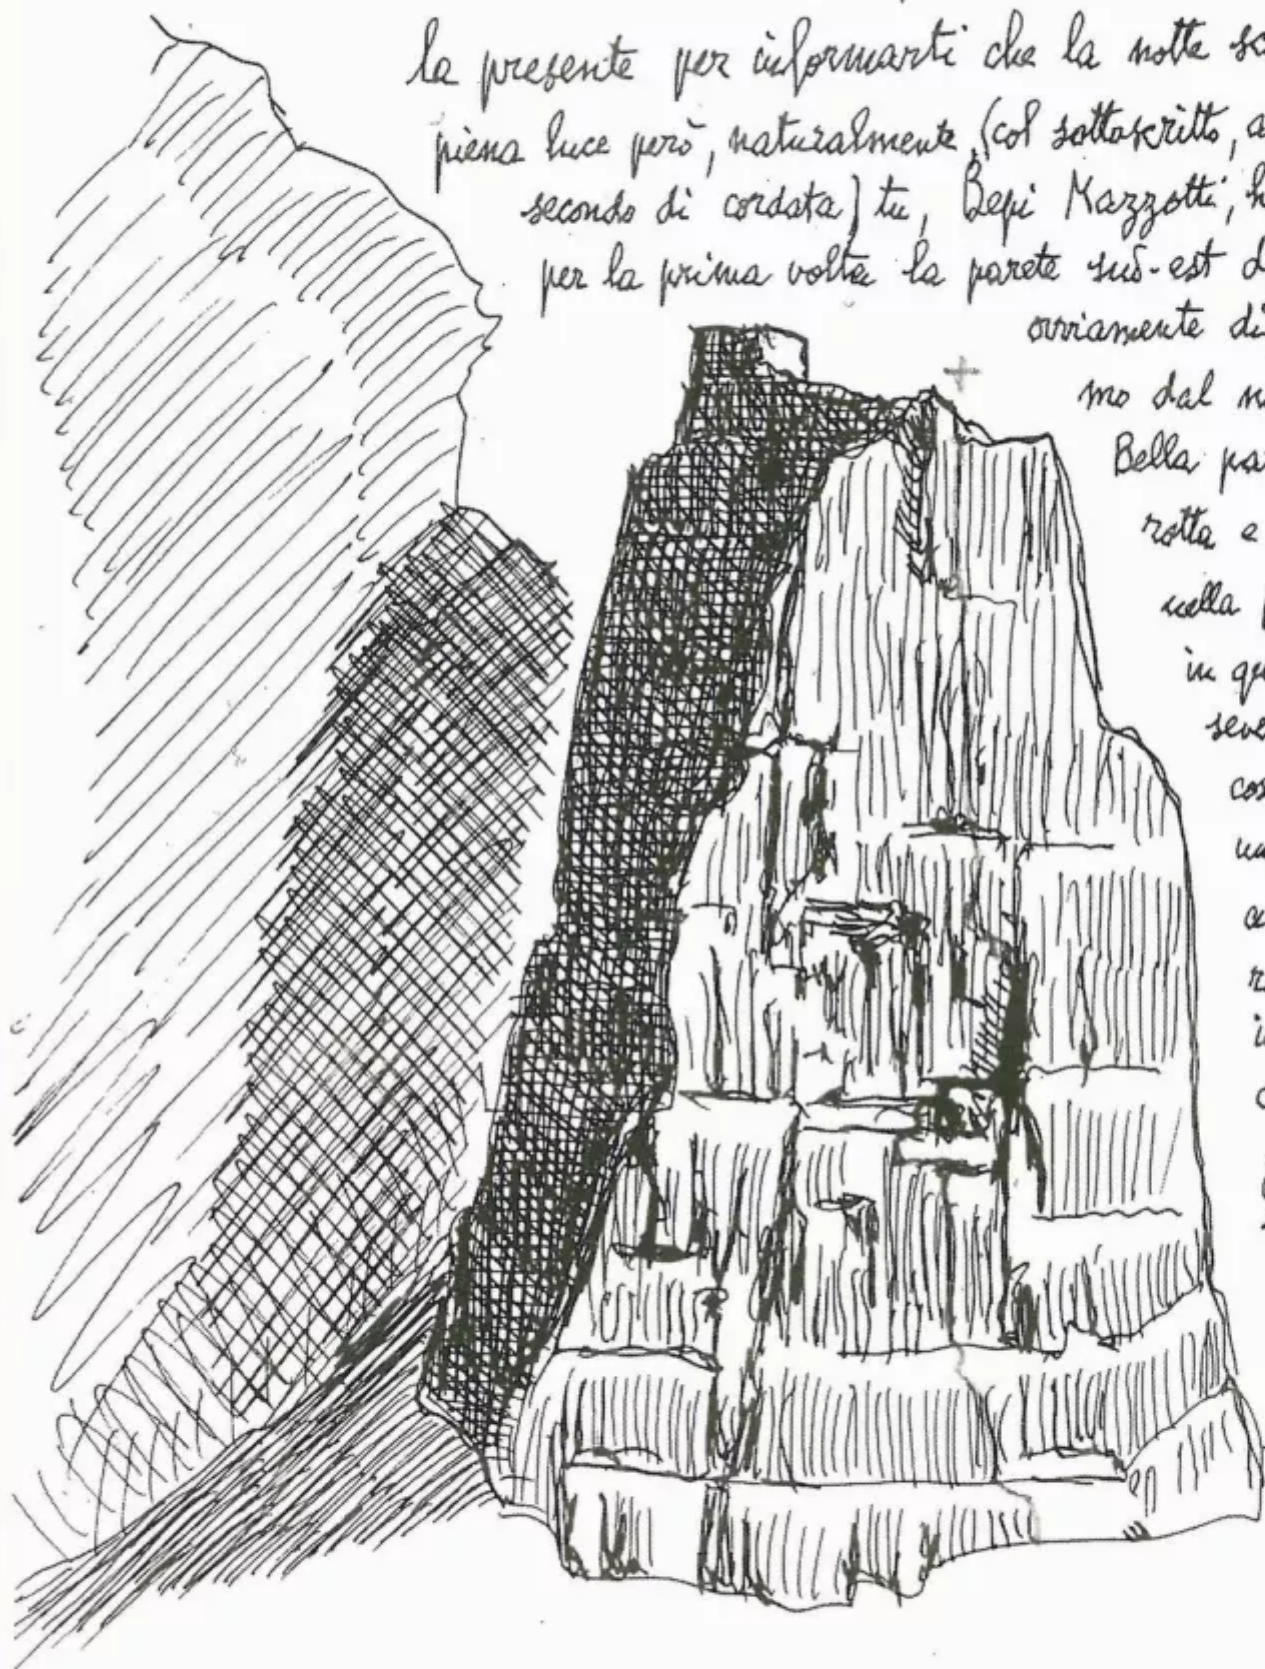 la presente per informarti che la notte sc
piena luce però, naturalmente, (col sottoscritto, a
secondo di cordata) tu, Bepi Mazzotti, h
per la prima volta la parete sud-est d
ovviamente di
mo dal n
Bella pa
rotta e
nella
in qu
seve
cos